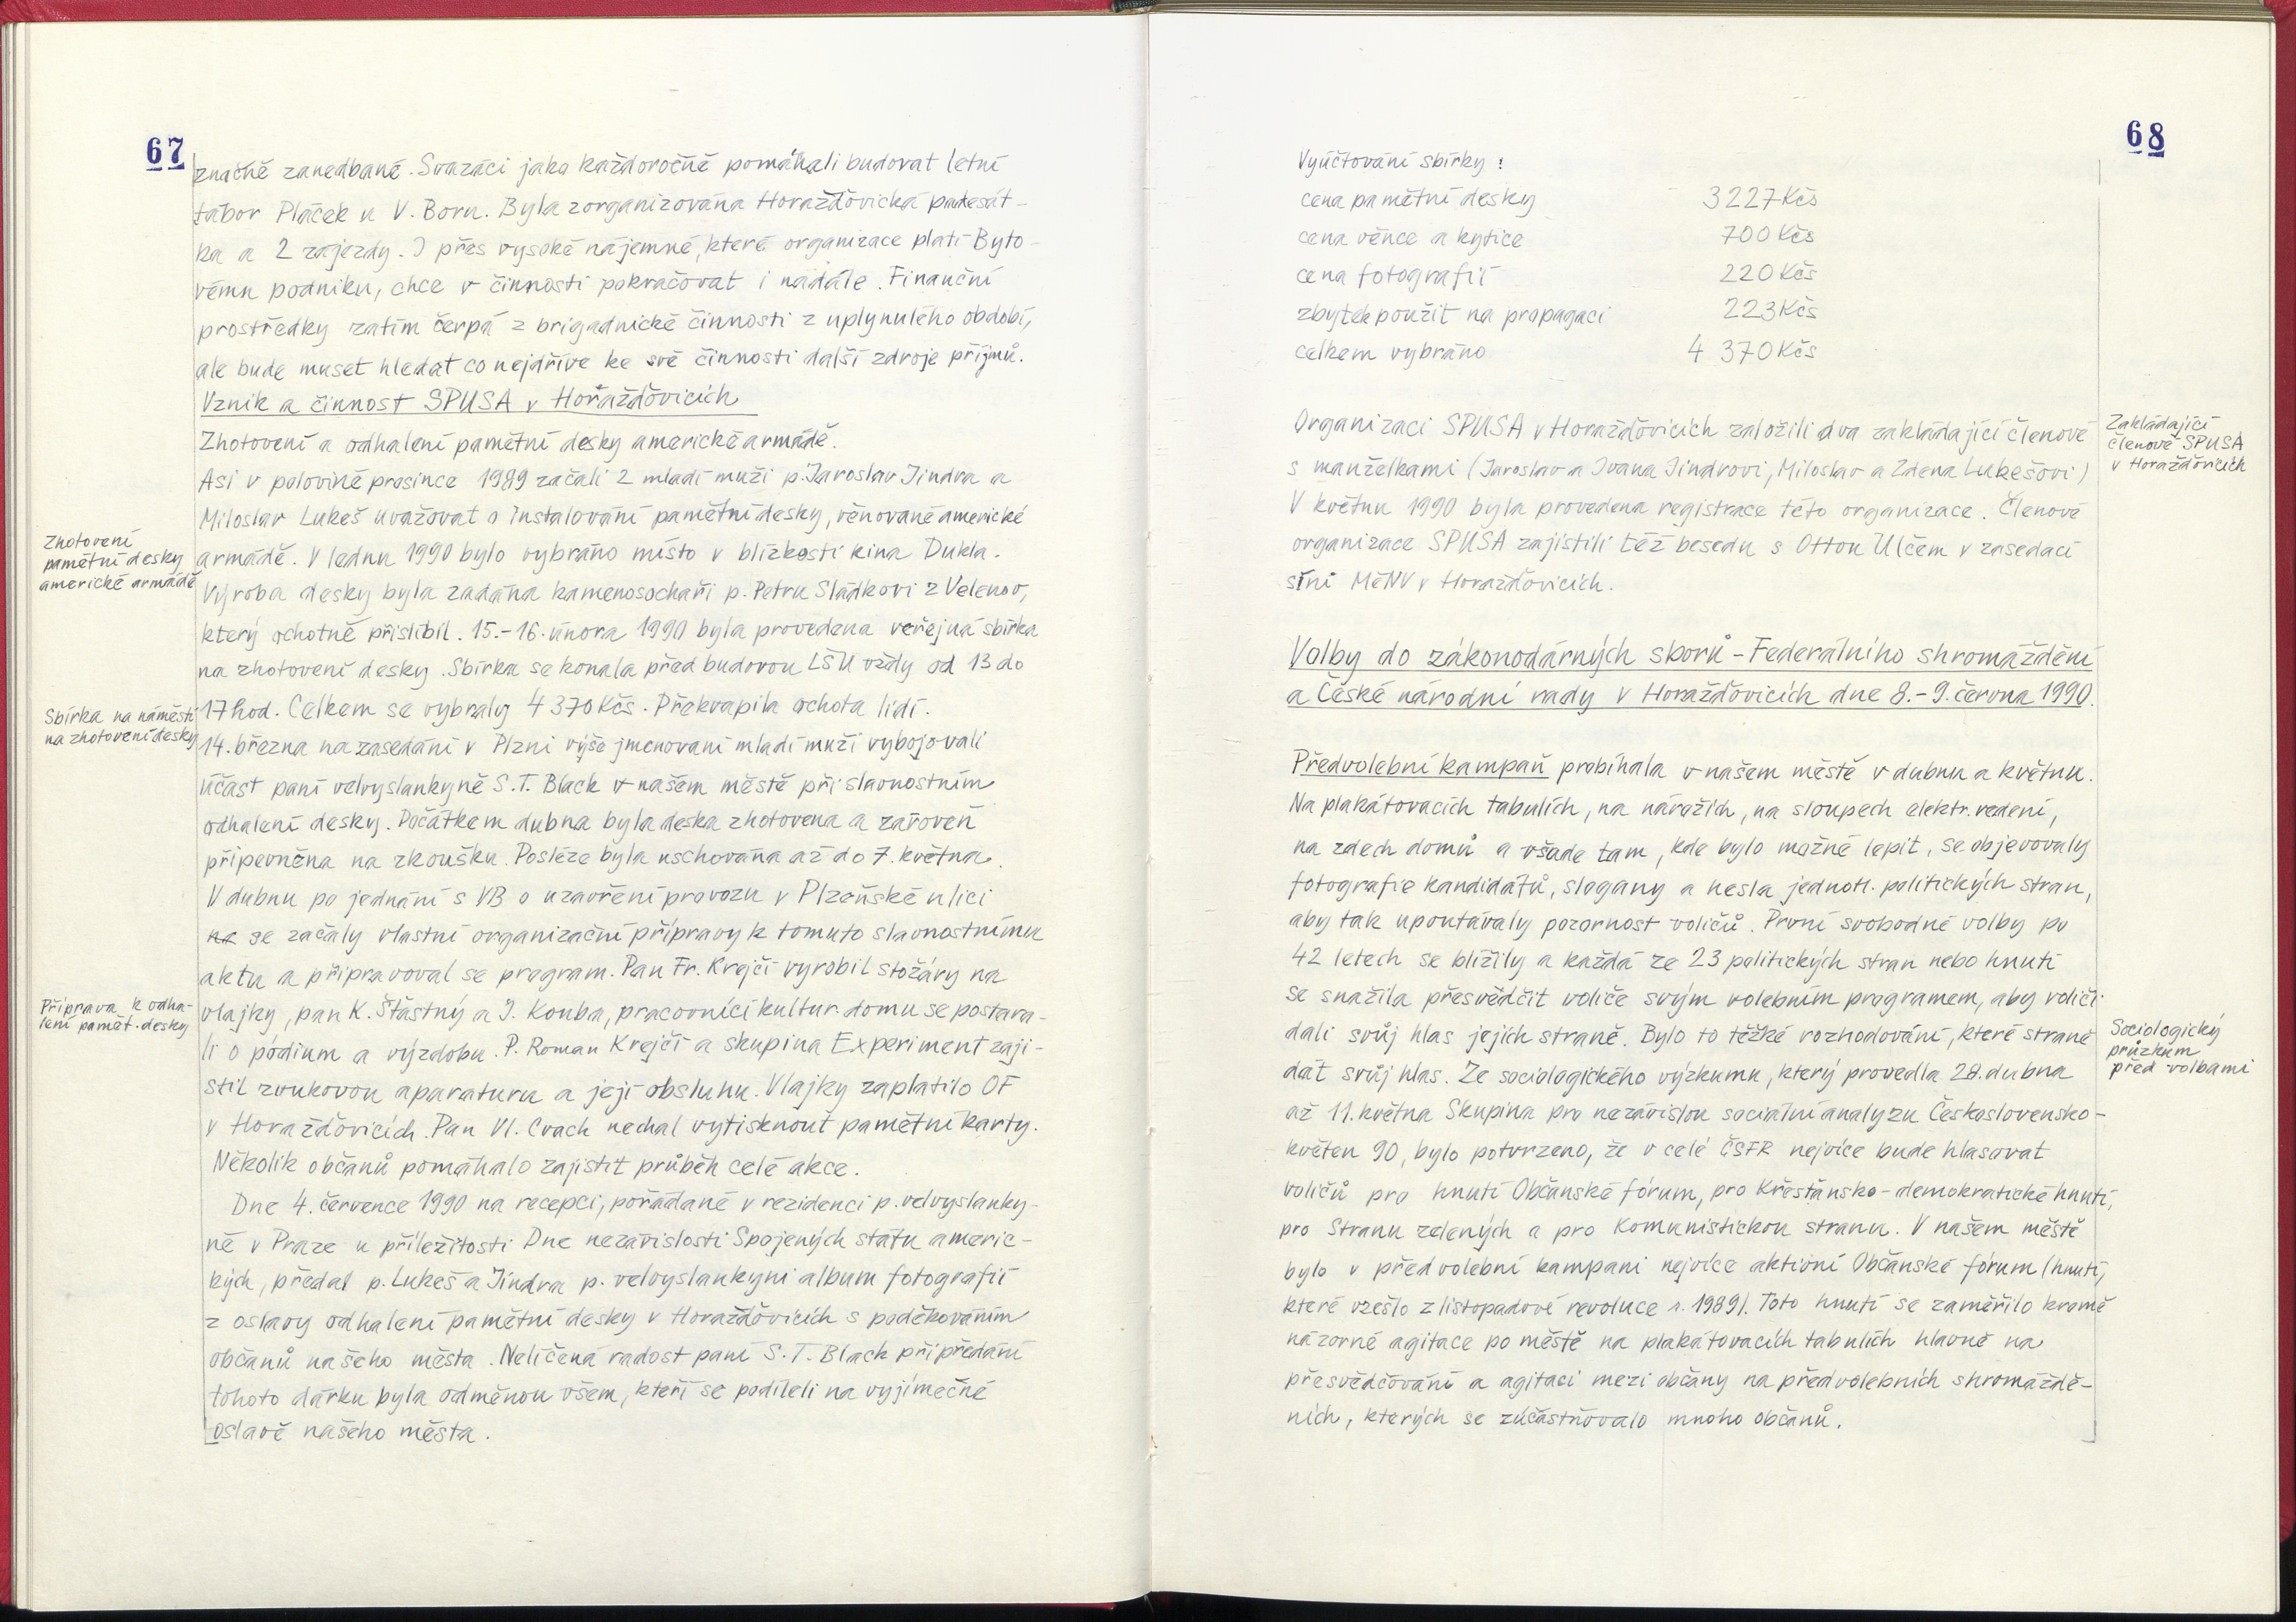 67
značně zanedbané. Svazáci jako každoročně pomáhali budovat letní
tábor Pláček u V. Boru. Byla zorganizována Horažďovická padesát-
ka a 2 zájezdy. I přes vysoké nájemné, které organizace platí Byto-
vému podniku, chce v činnosti pokračovat i nadále. Finanční
prostředky zatím čerpá z brigádnické činnosti z uplynulého období,
ale bude muset hledat co nejdříve ke své činnosti další zdroje příjmů.
Vznik a činnost SPUSA v Horažďovicích
Zhotovení a odhalení pamětní desky americké armádě.
Asi v polovině prosince 1989 začali 2 mladí muži p. Jaroslav Jindra a
Miloslav Lukeš uvažovat o instalování pamětní desky, věnované americké
Zhotovení
pamětní desky
americké armádě
armádě. V lednu 1990 bylo vybráno místo v blízkosti kina Dukla.
Výroba desky byla zadána kamenosochaři p. Petru Sládkovi z Velenov,
který ochotně přislíbil. 15.-16. února 1990 byla provedena veřejná sbírka
na zhotovení desky. Sbírka se konala před budovou LŠU vždy od 13 do
Sbírka na náměstí
na zhotovení desky
17 hod. Celkem se vybraly 4 370 Kčs. Překvapila ochota lidí.
14. března na zasedání v Plzni výše jmenovaní mladí muži vybojovali
účast paní velvyslankyně S. T. Black v našem městě při slavnostním
odhalení desky. Počátkem dubna byla deska zhotovena a zároveň
připevněna na zkoušku. Posléze byla uschována až do 7. května.
V dubnu po jednání s VB o uzavření provozu v Plzeňské ulici
se začaly vlastní organizační přípravy k tomuto slavnostnímu
aktu a připravoval se program. Pan Fr. Krejčí vyrobil stožáry na
Příprava k odha-
lení pamět. desky
vlajky, pan K. Šťastný a J. Kouba, pracovníci kultur. domu se postara-
li o pódium a výzdobu. P. Roman Krejčí a skupina Experiment zaji-
stil zvukovou aparaturu a její obsluhu. Vlajky zaplatilo OF
v Horažďovicích. Pan Vl. Cvach nechal vytisknout pamětní karty.
Několik občanů pomáhalo zajistit průběh celé akce.
Dne 4. července 1990 na recepci, pořádané v rezidenci p. velvyslanky-
ně v Praze u příležitosti Dne nezávislosti Spojených státu americ-
kých, předal p. Lukeš a Jindra p. velvyslankyni album fotografií
z oslavy odhalení pamětní desky v Horažďovicích s poděkováním
občanů našeho města. Nelíčená radost paní S. T. Black při předání
tohoto dárku byla odměnou všem, kteří se podíleli na vyjímečné
oslavě našeho města.
68
Vyúčtování sbírky:
cena pamětní desky 3227 Kčs
cena věnce a kytice 700 Kčs
cena fotografií 220 Kčs
zbytek použit na propagaci 223 Kčs
celkem vybráno 4 370 Kčs
Organizaci SPUSA v Horažďovicích založili dva zakládající členové
s manželkami (Jaroslav a Ivana Jindrovi, Miloslav a Zdena Lukešovi)
V květnu 1990 byla provedena registrace této organizace. Členové
organizace SPUSA zajistili též besedu s Ottou Ulčem v zasedací
síni MěNV v Horažďovicích.
Zakládající
členové SPUSA
v Horažďovicích
Volby do zákonodárných sborů - Federálního shromáždění
a České národní rady v Horažďovicích dne 8.-9. června 1990.
Předvolební kampaň probíhala v našem městě v dubnu a květnu.
Na plakátovacích tabulích, na nárožích, na sloupech elektr. vedení,
na zdech domů a všade tam, kde bylo možné lepit, se objevovaly
fotografie kandidátů, slogany a hesla jednotl. politických stran,
aby tak upoutávaly pozornost voličů. První svobodné volby po
42 letech se blížily a každá ze 23 politických stran nebo hnutí
se snažila přesvědčit voliče svým volebním programem, aby voliči
dali svůj hlas jejich straně. Bylo to těžké rozhodování, které straně
dát svůj hlas. Ze sociologického výzkumu, který provedla 28. dubna
Sociologický
průzkum
před volbami
až 11. května Skupina pro nezávislou sociální analyzu Československo-
květen 90, bylo potvrzeno, že v celé ČSFR nejvíce bude hlasovat
voličů pro hnutí Občanské fórum, pro Křesťansko-demokratické hnutí,
pro Stranu zelených a pro Komunistickou stranu. V našem městě
bylo v předvolební kampani nejvíce aktivní Občanské fórum (hnutí,
které vzešlo z listopadové revoluce r. 1989). Toto hnutí se zaměřilo kromě
názorné agitace po městě na plakátovacích tabulích hlavně na
přesvědčování a agitaci mezi občany na předvolebních shromáždě-
ních, kterých se zúčastňovalo mnoho občanů.